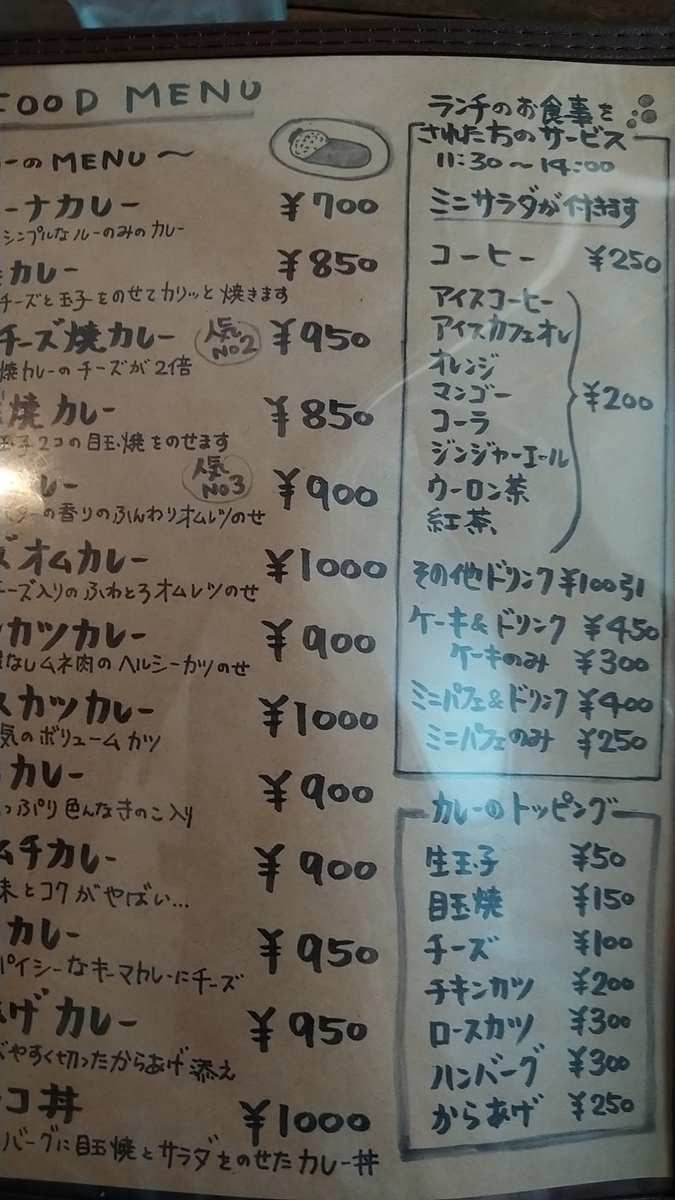 FOOD MENU
ーのMENU〜
ーナカレー ¥700
シンプルなルーのみのカレー
カレー ¥850
チーズと玉子をのせてカリッと焼きます
チーズ焼カレー 人気No2 ¥950
焼カレーのチーズが2倍
焼カレー ¥850
玉子2コの目玉焼をのせます
レー 人気No3 ¥900
ターの香りのふんわりオムレツのせ
ズオムカレー ¥1000
チーズ入りのふわとろオムレツのせ
カツカレー ¥900
なしムネ肉のヘルシーカツのせ
スカツカレー ¥1000
気のボリュームカツ
カレー ¥900
っぷり色んなきのこ入り
ムチカレー ¥900
味とコクがやばい...
カレー ¥950
パイシーなキーマカレーにチーズ
あげカレー ¥950
べやすく切ったからあげ添え
コ丼 ¥1000
バーグに目玉焼とサラダをのせたカレー丼
ランチのお食事を
された方のサービス
11:30〜14:00
ミニサラダが付きます
コーヒー ¥250
アイスコーヒー
アイスカフェオレ
オレンジ
マンゴー
コーラ
ジンジャーエール
ウーロン茶
紅茶
¥200
その他ドリンク¥100引
ケーキ&ドリンク ¥450
ケーキのみ ¥300
ミニパフェ&ドリンク ¥400
ミニパフェのみ ¥250
カレーのトッピング
生玉子 ¥50
目玉焼 ¥150
チーズ ¥100
チキンカツ ¥200
ロースカツ ¥300
ハンバーグ ¥300
からあげ ¥250